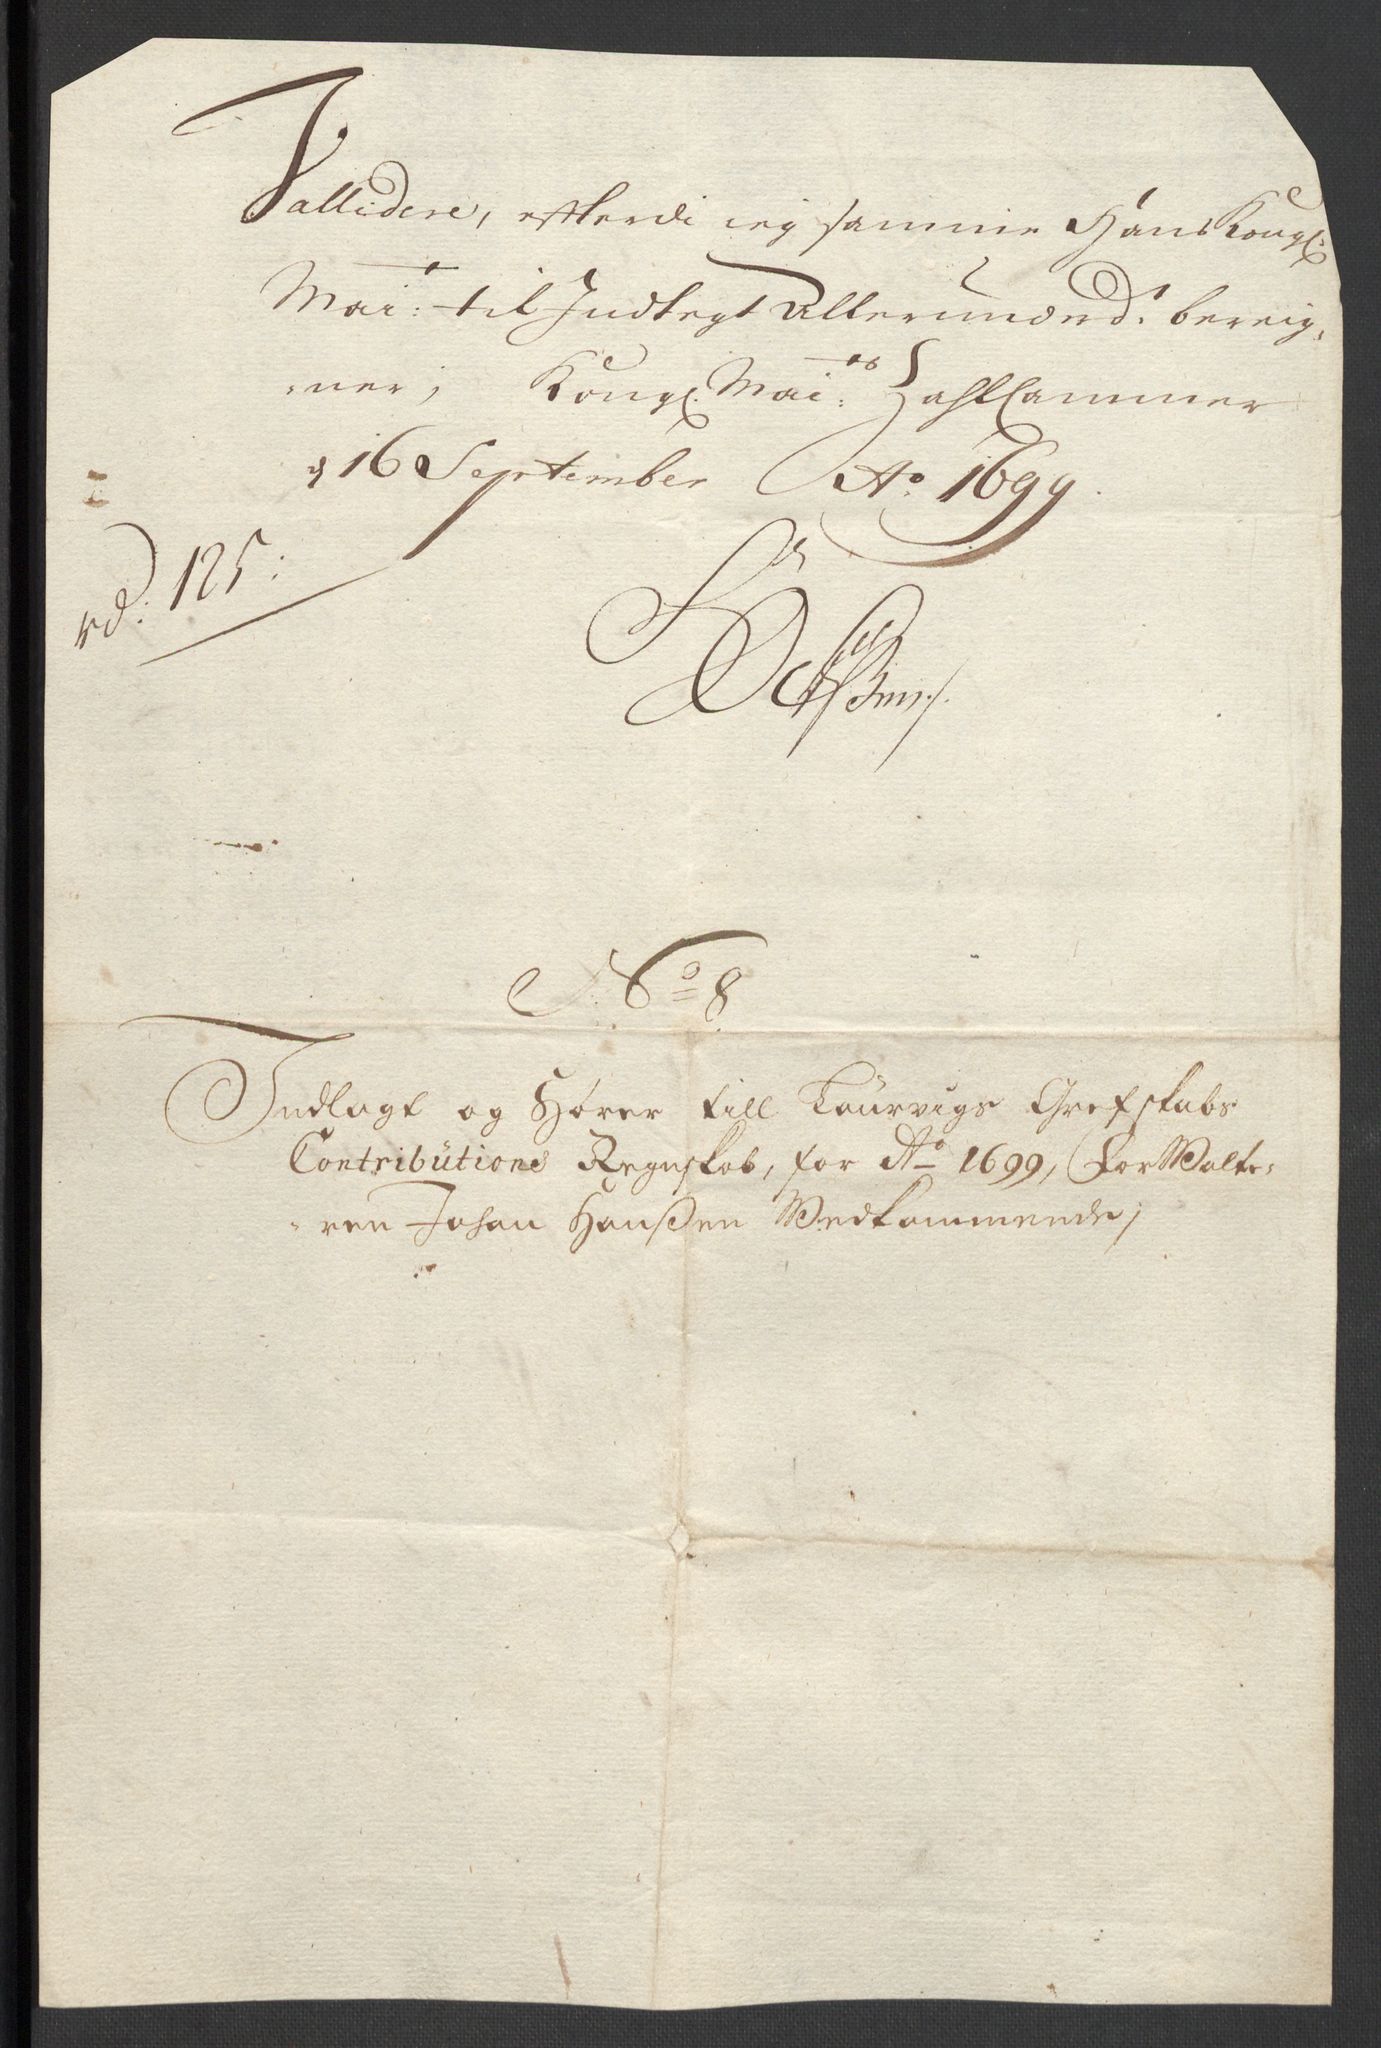 Vallidere, efterdi ieg samme Hans Kongl:
Mai:t til Indtegt Allerunderd:t bereig,
,ner; Kongl. Mai:ts Zahlkammer
d 16 September Ao: 1699.
rd: 125:
No 8
Indlagt og Hører till Laurvigs Grefskabs
Contributions Regnskab, for Ao 1699, ForWalte,
,ren Johan Hanßen Wedkommende;